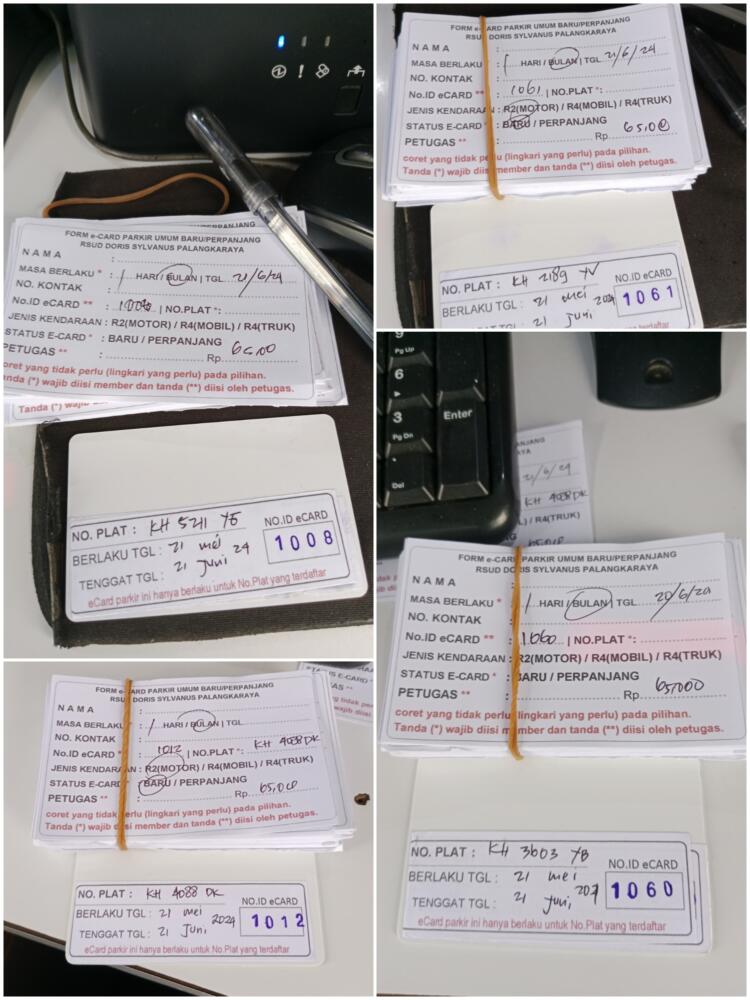 FORM e-CARD PARKIR UMUM BARU/PERPANJANG
RSUD DORIS SYLVANUS PALANGKARAYA
N A M A :
MASA BERLAKU * : 1 HARI / BULAN | TGL 21/6/24
NO. KONTAK :
No.ID eCARD ** : 1008 | NO.PLAT *:
JENIS KENDARAAN : R2(MOTOR) / R4(MOBIL) / R4(TRUK)
STATUS E-CARD * : BARU / PERPANJANG
PETUGAS ** : Rp.
coret yang tidak perlu (lingkari yang perlu) pada pilihan.
Tanda (*) wajib diisi member dan tanda (**) diisi oleh petugas.
Tanda (*) wajib
NO. PLAT : KH 5211 YS
BERLAKU TGL : 21 mei 24
TENGGAT TGL : 21 Juni
NO.ID eCARD
1008
eCard parkir ini hanya berlaku untuk No.Plat yang terdaftar
FORM e-CARD PARKIR UMUM BARU/PERPANJANG
RSUD DORIS SYLVANUS PALANGKARAYA
N A M A :
MASA BERLAKU : 1 HARI / BULAN | TGL 21/6/24
NO. KONTAK
No.ID eCARD : 1061 | NO.PLAT *:
JENIS KENDARAAN : R2(MOTOR) / R4(MOBIL) / R4(TRUK)
STATUS E-CARD * : BARU / PERPANJANG
PETUGAS ** Rp. 65.00
coret yang tidak perlu (lingkari yang perlu) pada pilihan.
Tanda (*) wajib diisi member dan tanda (**) diisi oleh petugas.
NO. PLAT : KH 2189 YV
BERLAKU TGL : 21 mei 2024
21 Juni
NO.ID eCARD
1061
9
Pg Up
6
3
Pg Dn
Del
Enter
21/6/24
KH 4088 DK
R4(TRUK)
65.000
FORM e-CARD PARKIR UMUM BARU/PERPANJANG
RSUD DORIS SYLVANUS PALANGKARAYA
N A M A
MASA BERLAKU * 1 HARI / BULAN | TGL 20/6/24
NO. KONTAK
No.ID eCARD ** : 1060 | NO.PLAT *:
JENIS KENDARAAN : R2(MOTOR) / R4(MOBIL) / R4(TRUK)
STATUS E-CARD * : BARU / PERPANJANG
PETUGAS ** Rp. 65000
coret yang tidak perlu (lingkari yang perlu) pada pilihan.
Tanda (*) wajib diisi member dan tanda (**) diisi oleh petugas.
NO. PLAT : KH 3603 YB
BERLAKU TGL : 21 mei
TENGGAT TGL : 21 Juni
NO.ID eCARD
1060
eCard parkir ini hanya berlaku untuk No.Plat yang terdaftar
FORM e-CARD PARKIR UMUM BARU/PERPANJANG
RSUD DORIS SYLVANUS PALANGKARAYA
N A M A :
MASA BERLAKU 1 HARI / BULAN | TGL
NO. KONTAK
No.ID eCARD ** : 1012 | NO.PLAT *: KH 4088 DK
JENIS KENDARAAN : R2(MOTOR) / R4(MOBIL) / R4(TRUK)
STATUS E-CARD BARU / PERPANJANG
PETUGAS ** Rp. 65,000
coret yang tidak perlu (lingkari yang perlu) pada pilihan.
Tanda (*) wajib diisi member dan tanda (**) diisi oleh petugas.
NO. PLAT : KH 4088 DK
BERLAKU TGL : 21 mei 2024
TENGGAT TGL : 21 Juni
NO.ID eCARD
1012
eCard parkir ini hanya berlaku untuk No.Plat yang terdaftar